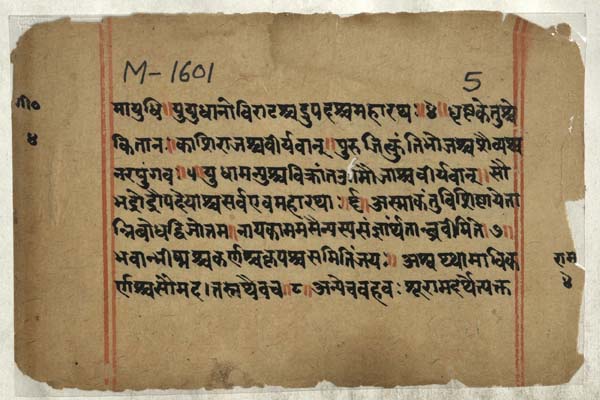 M-1601 5
गी०
४
मायुधि॥युयुधानोविराटश्चद्रुपदश्चमहारथः॥४॥धृष्टकेतुश्चे
कितानःकाशिराजश्चवीर्यवान्॥पुरुजित्कुंतिभोजश्चशैव्यश्च
नरपुंगवः॥५॥युधामन्युश्चविक्रांतउत्तमौजाश्चवीर्यवान्॥सौ
भद्रोद्रौपदेयाश्चसर्वएवमहारथाः॥६॥अस्माकंतुविशिष्टायेता
न्निबोधद्विजोत्तम॥नायकाममसैन्यस्यसंज्ञार्थंतान्ब्रवीमिते॥७॥
भवान्भीष्मश्चकर्णश्चकृपश्चसमितिंजयः॥अश्वत्थामाविक
र्णश्चसौमदत्तिस्तथैवच॥८॥अन्येचबहवःशूरामदर्थेत्यक्त
राम
४